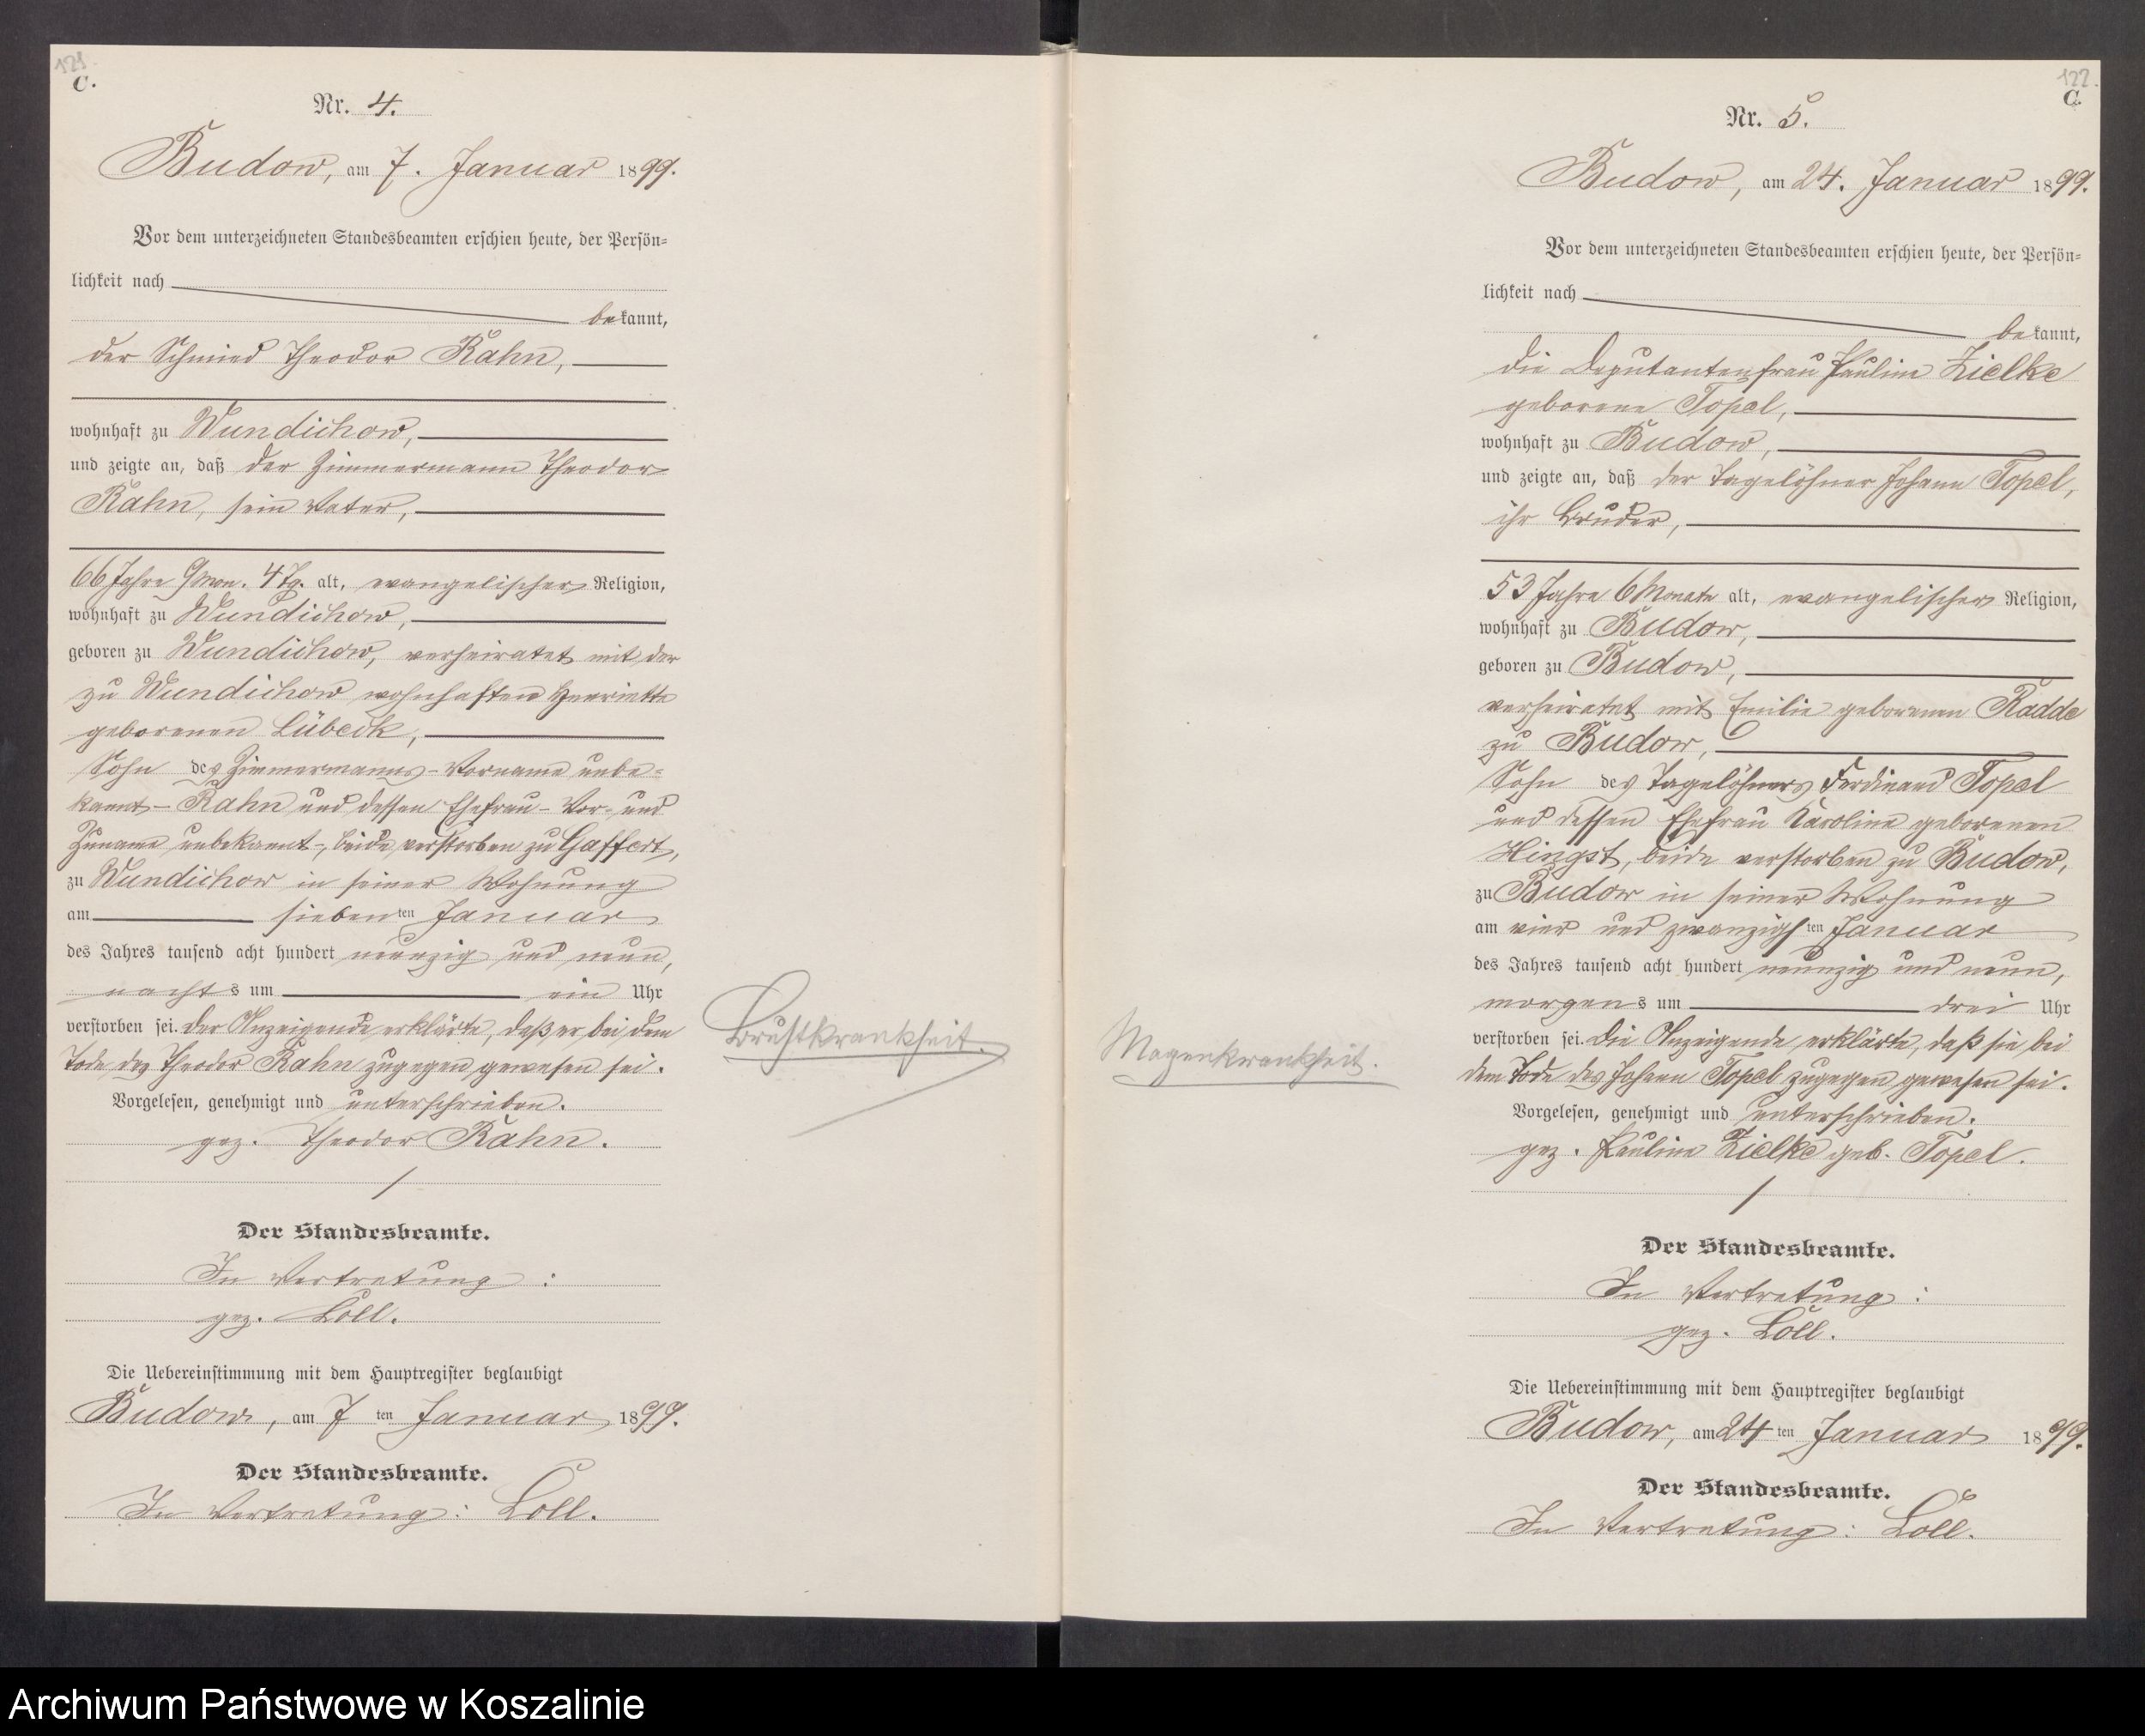 121
C.
Nr. 4.
Budow, am 7. Januar 1899.
Vor dem unterzeichneten Standesbeamten erschien heute, der Persön-
lichkeit nach
bekannt,
der Schmied Theodor Rahn,
wohnhaft zu Wundichow,
und zeigte an, daß der Zimmermann Theodor
Rahn, sein Vater,
66 Jahre 9 Mon. 4 Tg. alt, evangelischer Religion,
wohnhaft zu Wundichow,
geboren zu Wundichow, verheiratet mit der
zu Wundichow wohnhaften Henriette
geborenen Lübeck,
Sohn des Zimmermanns - Vorname unbe-
kannt - Rahn und dessen Ehefrau - Vor- und
Zuname unbekannt -, beide verstorben zu Gaffert,
zu Wundichow in seiner Wohnung
am siebenten Januar
des Jahres tausend acht hundert neunzig und neun,
nachts um ein Uhr
verstorben sei. Der Anzeigende erklärte, daß er bei dem
Tode des Theodor Rahn zugegen gewesen sei.
Vorgelesen, genehmigt und unterschrieben.
gez. Theodor Rahn.
Der Standesbeamte.
In Vertretung:
gez. Loll.
Die Uebereinstimmung mit dem Hauptregister beglaubigt
Budow, am 7ten Januar 1899.
Der Standesbeamte.
In Vertretung: Loll.
Brustkrankheit.
122.
C.
Nr. 5.
Budow, am 24. Januar 1899.
Vor dem unterzeichneten Standesbeamten erschien heute, der Persön-
lichkeit nach
bekannt,
die Deputantenfrau Pauline Zielke
geborene Topel,
wohnhaft zu Budow,
und zeigte an, daß der Tagelöhner Johann Topel,
ihr Bruder,
53 Jahre 6 Monate alt, evangelischer Religion,
wohnhaft zu Budow,
geboren zu Budow,
verheiratet mit Emilie geborenen Radde
zu Budow,
Sohn des Tagelöhners Ferdinand Topel
und dessen Ehefrau Karoline geborenen
Hingst, beide verstorben zu Budow,
zu Budow in seiner Wohnung
am vier und zwanzigsten Januar
des Jahres tausend acht hundert neunzig und neun,
morgens um drei Uhr
verstorben sei. Die Anzeigende erklärte, daß sie bei
dem Tode des Johann Topel zugegen gewesen sei.
Vorgelesen, genehmigt und unterschrieben.
gez. Pauline Zielke geb. Topel.
Der Standesbeamte.
In Vertretung:
gez. Loll.
Die Uebereinstimmung mit dem Hauptregister beglaubigt
Budow, am 24ten Januar 1899.
Der Standesbeamte.
In Vertretung: Loll.
Magenkrankheit.
Archiwum Państwowe w Koszalinie